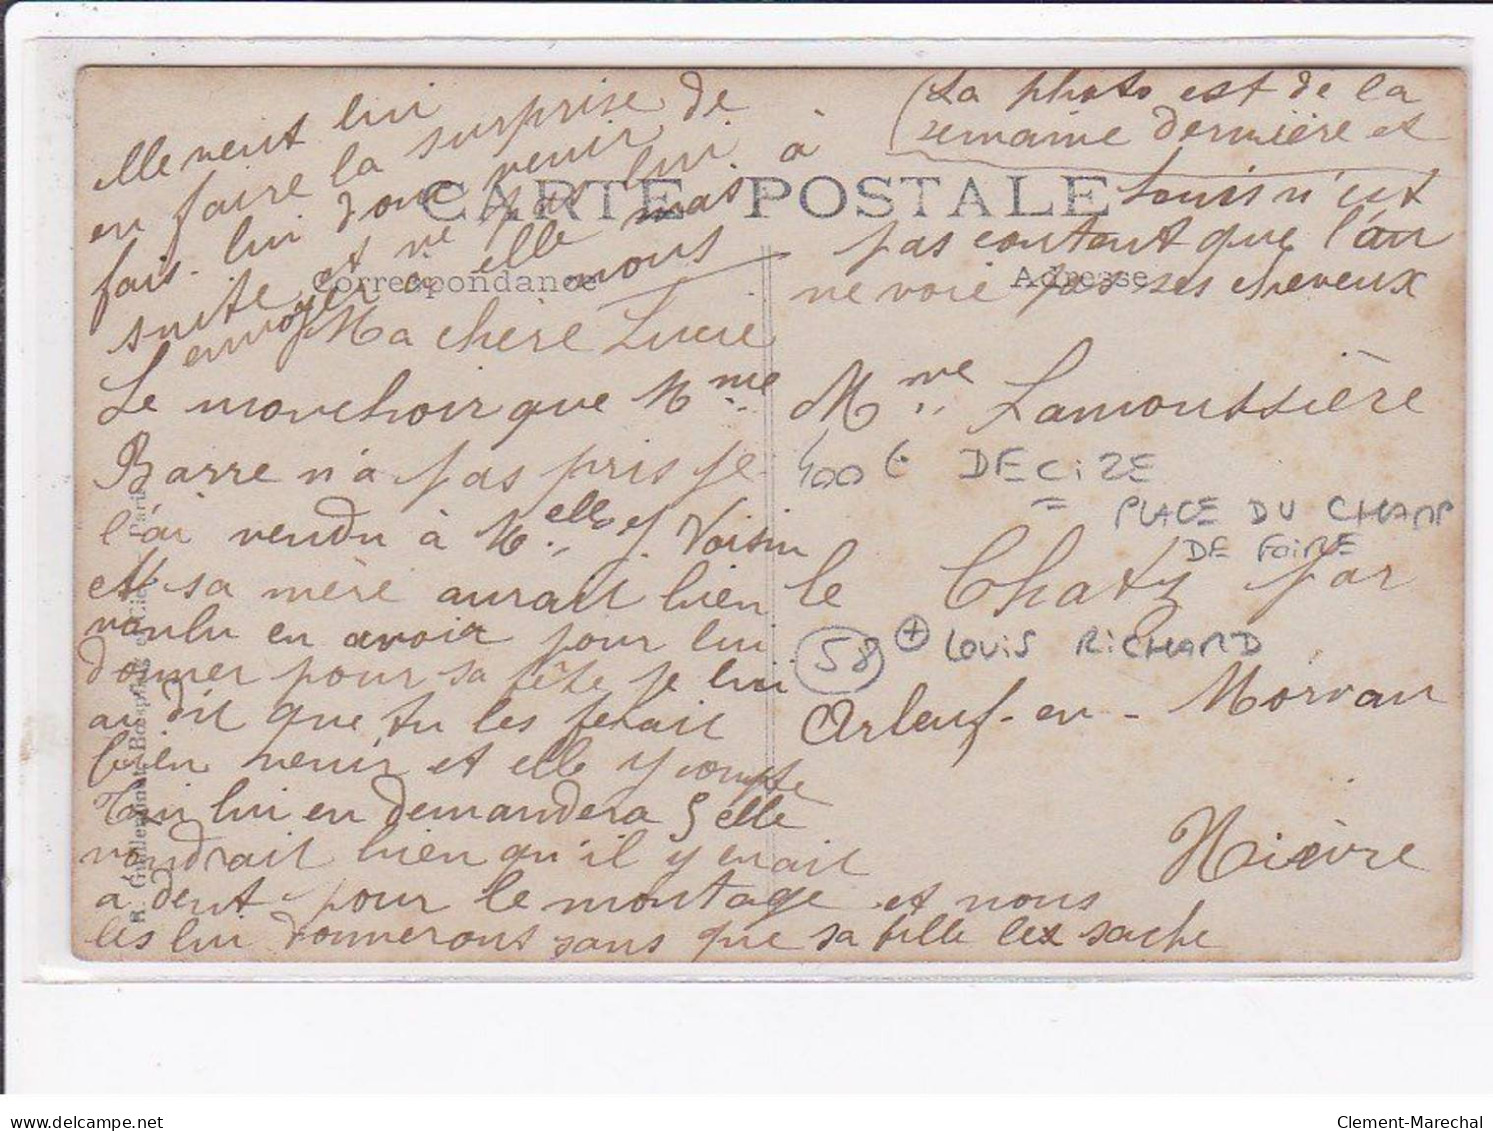 elle veut lui
en faire la surprise de
fais-lui donc venir à
suite et ne pas lui
envoyer à elle mais
nous
(La photo est de la
semaine dernière et
Louis n'est
pas content que l'an
ne voie pas ses cheveux
CARTE POSTALE
Correspondance
Adresse
Ma chère Lucie
Le mouchoir que Mme
Barre n'a pas pris je
l'ai vendu à Melle J. Voisin
et sa mère aurait bien
voulu en avoir pour lui
donner pour sa fête je lui
ai dit que tu les ferait
bien venir et elle y compte
lui en demandera 5 elle
voudrait bien qu'il y en ait
a dent pour le montage et nous
les lui donnerons sans que sa fille les sache
Mme Lamoussière
400 € DECIZE
= PLACE DU CHAMP
DE FOIRE
le Chatz par
58 + LOUIS RICHARD
Arleuf-en-Morvan
Nièvre
R. Guilleminot, Boespflug et Cie - Paris
www.delcampe.net
Clement-Marechal